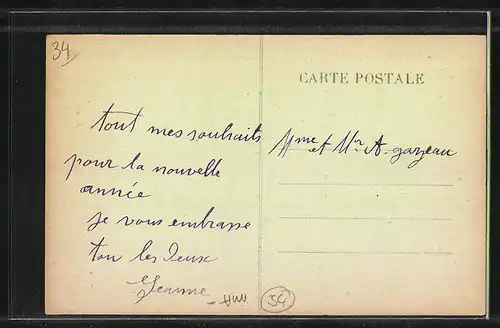 34
CARTE POSTALE
tout mes souhaits
pour la nouvelle
année
je vous embrasse
tou les deux
Jeanne
Mme et Mr A. gazeau
34